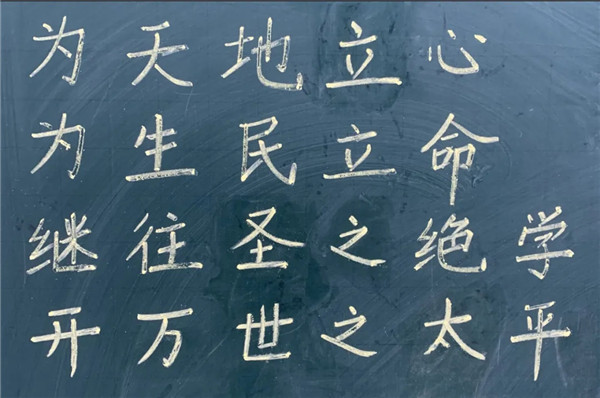 为天地立心
为生民立命
继往圣之绝学
开万世之太平